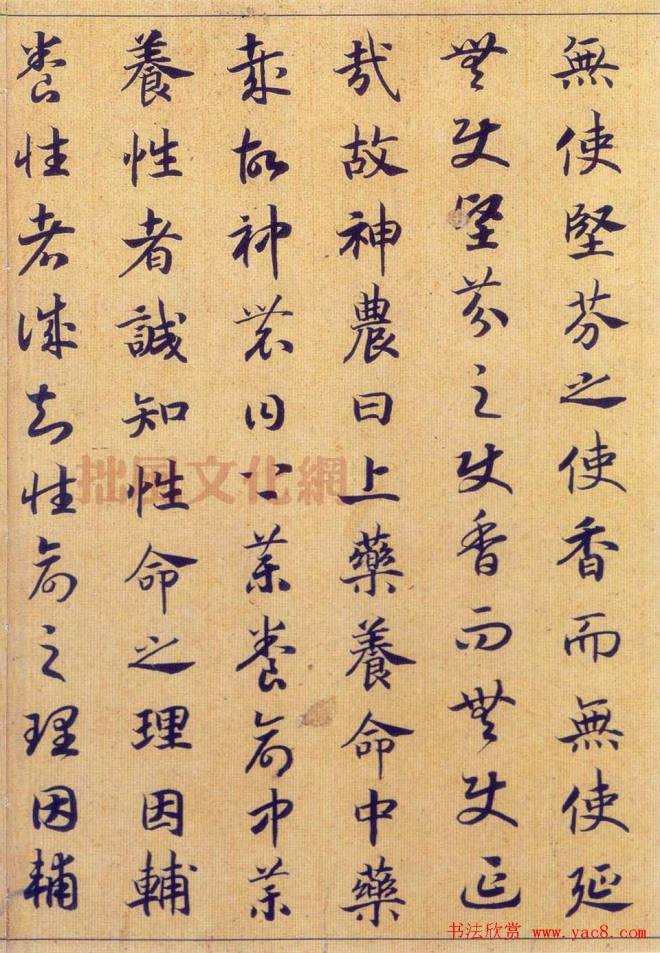 無使堅芬之使香而無使延
無使堅芬之使香而無使延
哉故神農曰上藥養命中藥
哉故神農曰上藥養命中藥
養性者誠知性命之理因輔
養性者誠知性命之理因輔
拙風文化網
书法欣赏 www.yac8.com